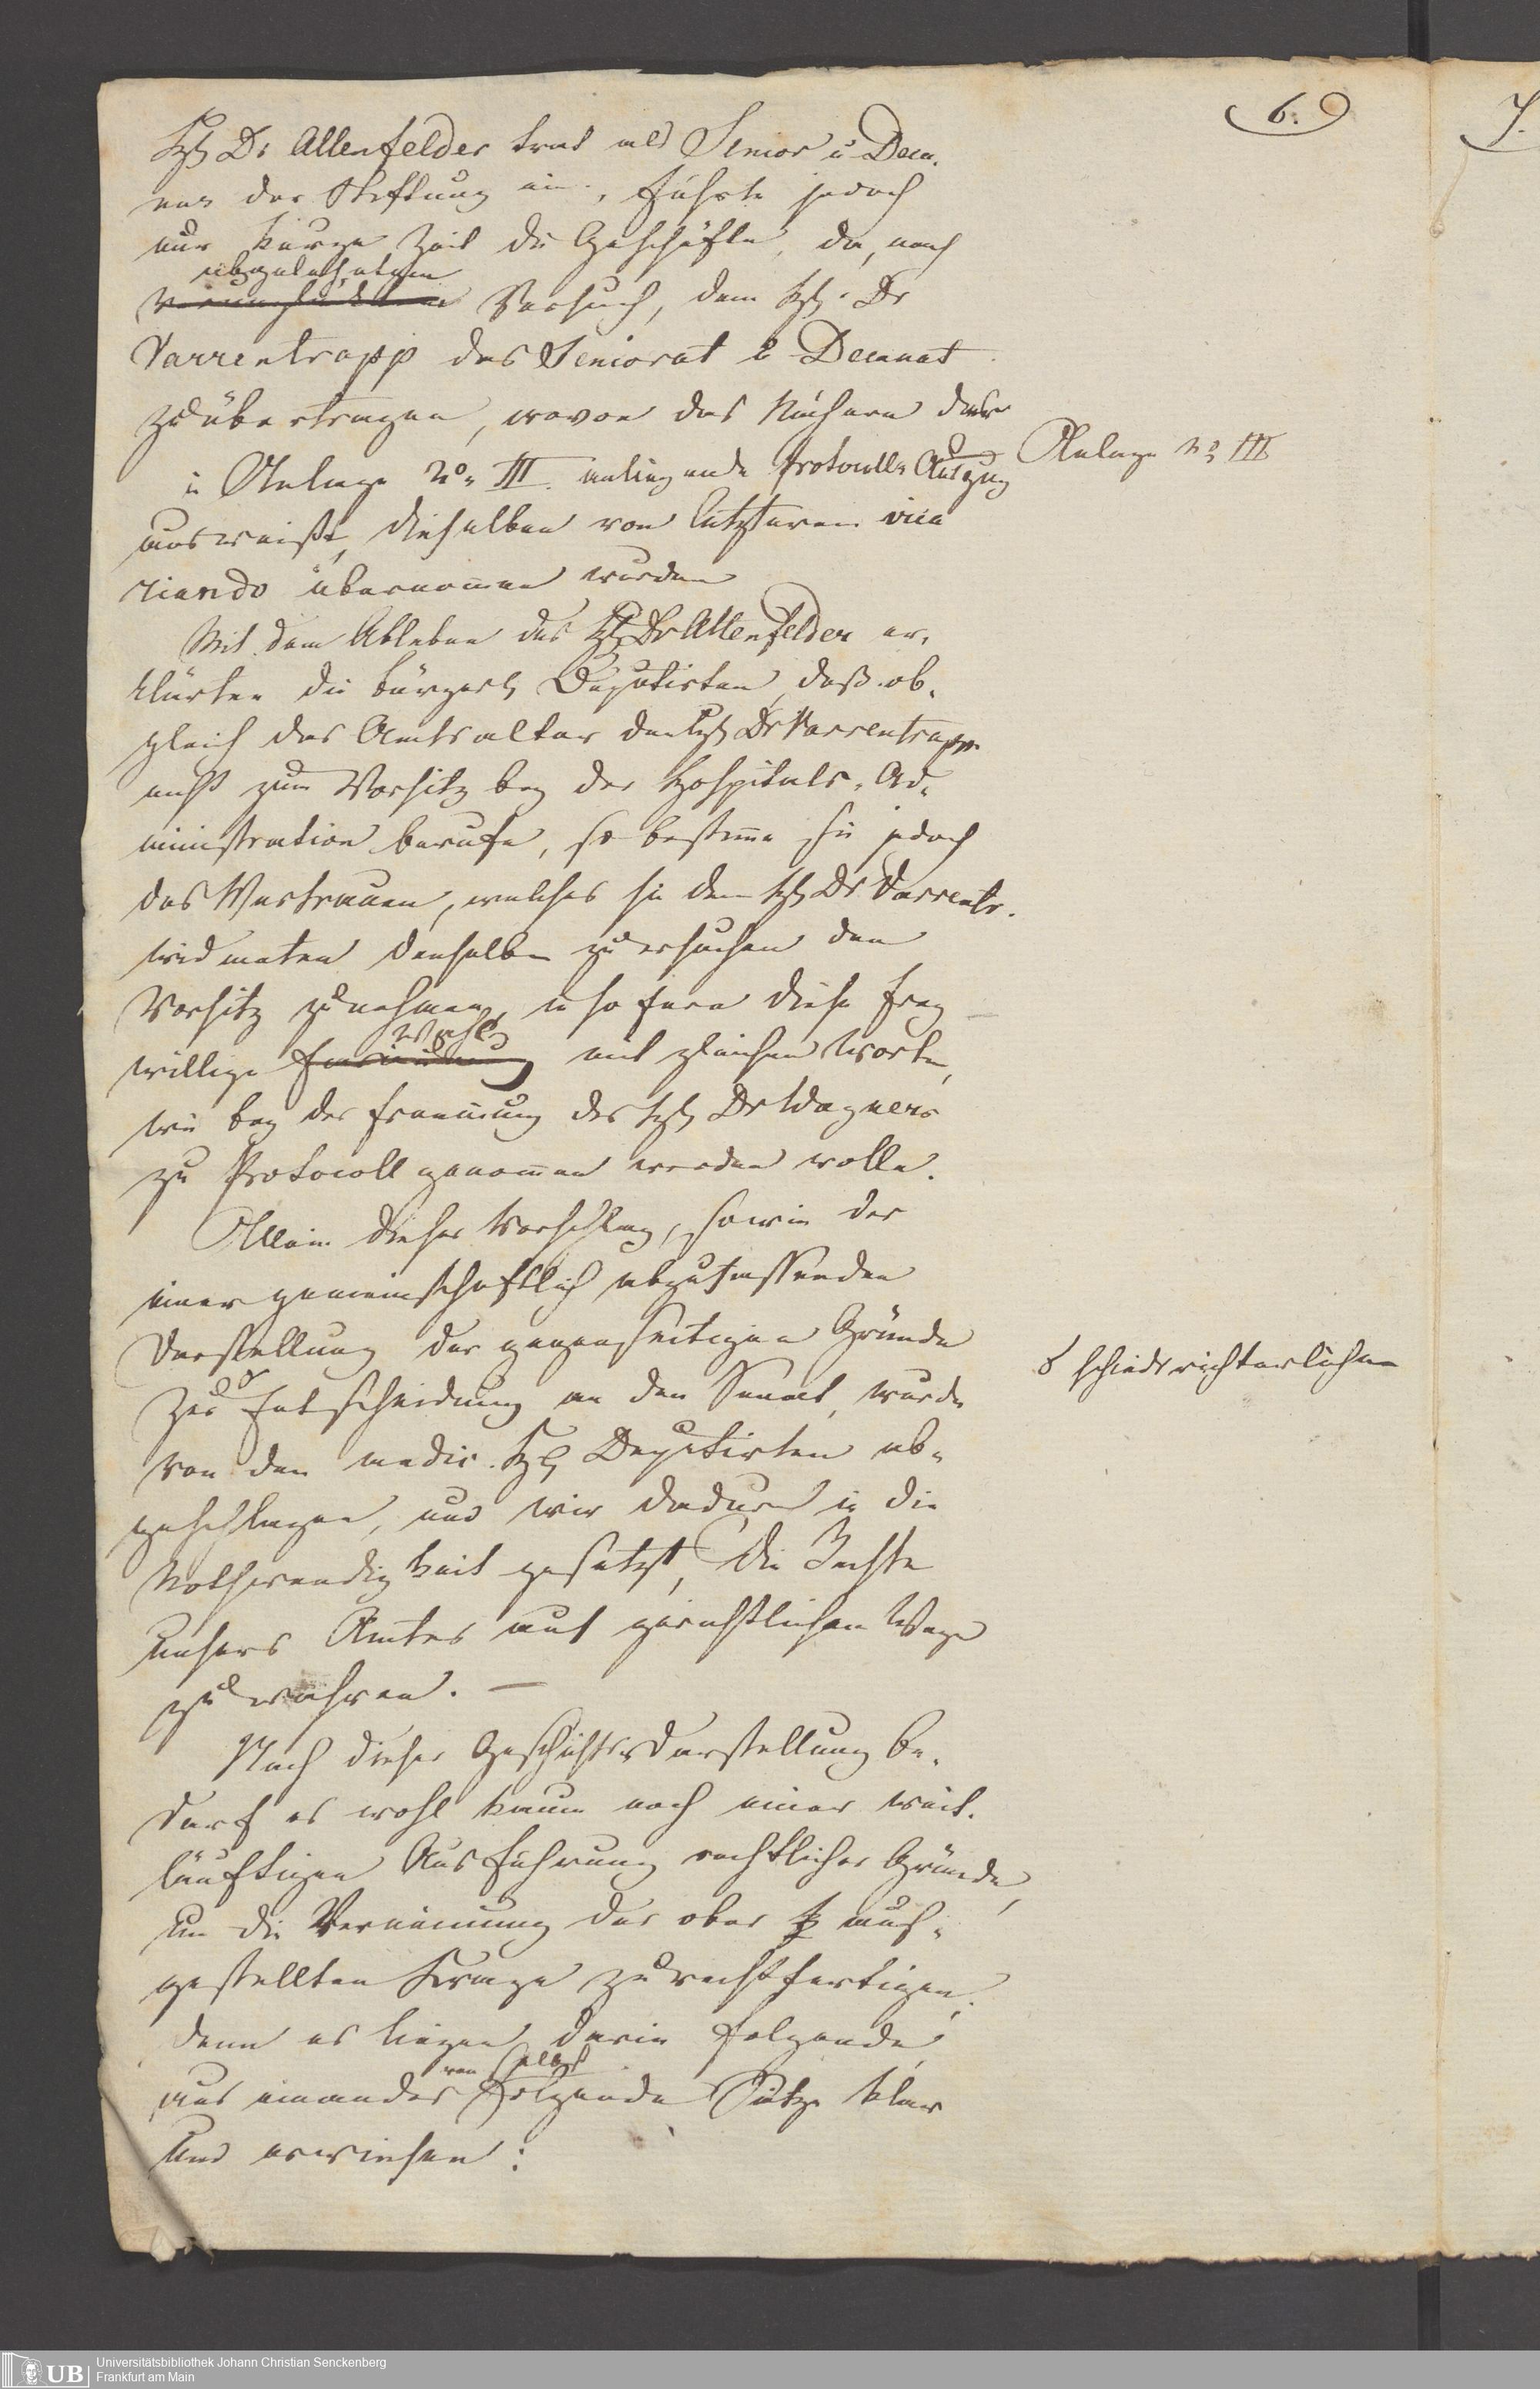 6.
Hℓ Dr Allenfelder trat als Senior u Deca-
nus der Stiftung ein, führte jedoch
nur kurze Zeit die Geschäfte, da, nach
abgelehntem
Versuch, dem Hℓ. Dr
Varrentrapp das Seniorat & Decanat
zu übertragen, wovon das Nähere der
in Anlage No III. anliegende Protocolls Auszug
Anlage No III
ausweißt, dieselben von letzterem vica
riando übernom̄en wurden
Mit dem Ableben des Hℓ Dr Allenfelder er-
klärten die bürgerℓ Deputirten, daß ob-
gleich das Amtsalter den Hℓ Dr Varrentrapp
nicht zum Vorsitz bey der Hospitals-Ad-
ministration berufe, so bestim̄e sie jedoch
das Vertrauen, welches sie dem Hℓ Dr Varrentr.
widmeten denselben zu ersuchen den
Vorsitz zu nehmen, in so fern diese frey
Wahl
willige mit gleichen Worten,
wie bey der Ernennung des Hℓ Dr Wagners
zu Protocoll genom̄en werden wolle.
Allein dieser Vorschlag, sowie der
einer gemeinschaftlich abzufassenden
Darstellung der gegenseitigen Gründe
zur Entscheidung an den Senat, wurde
schiedsrichterlichen
von den medic. Hℓ Deputirten ab-
geschlagen, und wir dadurch in die
Nothwendigkeit gesetzt, die Rechte
unsers Amtes auf gerichtlichem Wege
zu wahren. —
Nach dieser Geschichtsdarstellung be-
darf es wohl kaum noch einer weit-
läuftigen Ausführung rechtlicher Gründe,
um die Verneinung der oben auf-
gestellten Frage zu rechtfertigen,
denn es liegen darin folgende
von selbst
aus einander folgende Sätze klar
und erwiesen:
7.
UB
Universitätsbibliothek Johann Christian Senckenberg
Frankfurt am Main